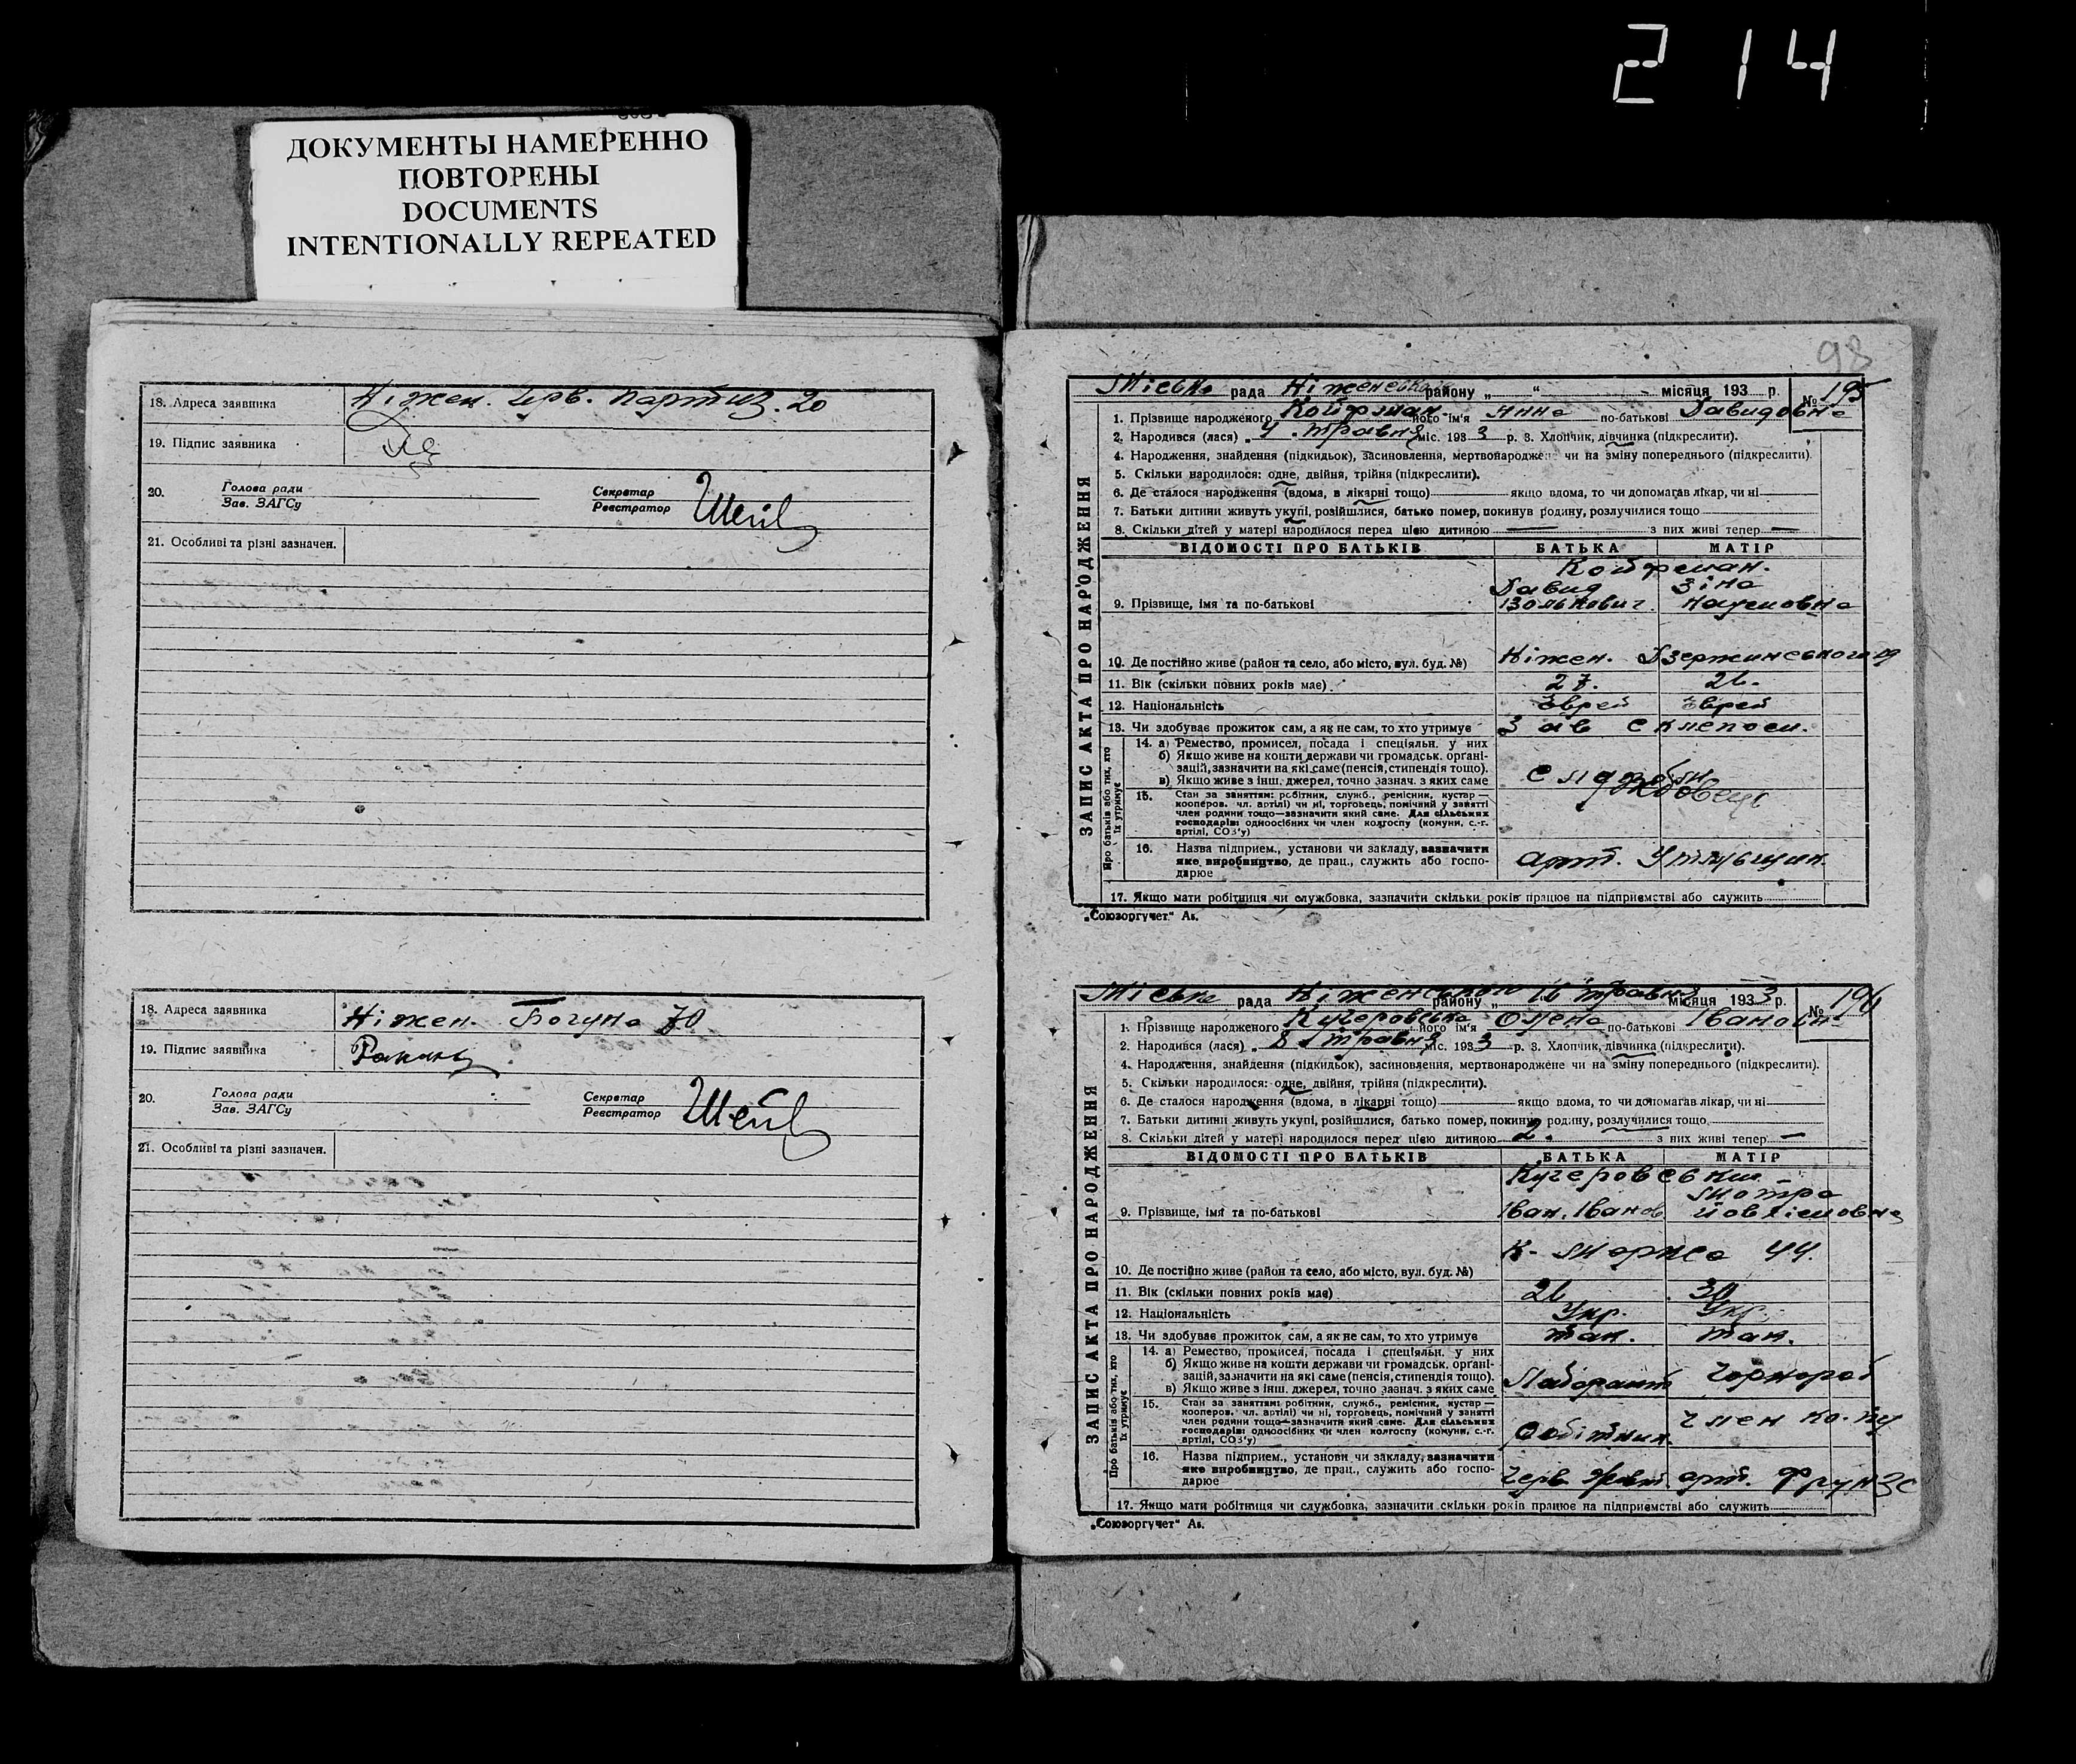 2 14
ДОКУМЕНТЫ НАМЕРЕННО
ПОВТОРЕНЫ
DOCUMENTS
INTENTIONALLY REPEATED
18. Адреса заявника Ніжен. Черв. Партиз. 20
19. Підпис заявника
20. Голова ради
Зав. ЗАГСу
Секретар
Реєстратор
21. Особливі та різні зазначен.
18. Адреса заявника Ніжен. Богуна 70
19. Підпис заявника
20. Голова ради
Зав. ЗАГСу
Секретар
Реєстратор
21. Особливі та різні зазначен.
98
ЗАПИС АКТА ПРО НАРОДЖЕННЯ
Міська рада Ніженського району „ “ місяця 193 р. № 195
1. Прізвище народженого Койфман його ім'я Анна по-батькові Давидовна
2. Народився (лася) „ 4 травня міс. 1933 р. 3. Хлопчик, дівчинка (підкреслити).
4. Народження, знайдення (підкидьок), засиновлення, мертвонароджене чи на зміну попереднього (підкреслити)
5. Скільки народилося: одне, двійня, трійня (підкреслити).
6. Де сталося народження (вдома, в лікарні тощо) якщо вдома, то чи допомагав лікар, чи ні
7. Батьки дитини живуть укупі, розійшлися, батько помер, покинув родину, розлучилися тощо
8. Скільки дітей у матері народилося перед цією дитиною — з них живі тепер —
ВІДОМОСТІ ПРО БАТЬКІВ БАТЬКА МАТІР
Койфман.
Давид Зіна
9. Прізвище, імя та по-батькові Наумовна
10. Де постійно живе (район та село, або місто, вул. буд. №) Ніжен. Дзержинського 19
11. Вік (скільки повних років має) 27. 26.
12. Національність Єврей Єврей
13. Чи здобуває прожиток сам, а як не сам, то хто утримує Зав складом.
Про батьків або тих, хто їх утримує
14. а) Ремество, промисел, посада і спеціяльн. у них
б) Якщо живе на кошти держави чи громадськ. організацій, зазначити на які саме (пенсія, стипендія тощо).
в) Якщо живе з інш. джерел, точно зазнач. з яких саме
15. Стан за заняттям: робітник, служб., ремісник, кустар—
кооперов. чл. артілі) чи ні, торговець, помічний у занятті
член родини тощо—зазначити який саме. Для сільських
господарів: одноосібних чи член колгоспу (комуни, с.-г.
артілі, СОЗ'у)
16. Назва підприєм., установи чи закладу, зазначити
яке виробництво, де прац., служить або госпо-
дарює арт. Утильщик.
17. Якщо мати робітниця чи службовка, зазначити скільки років працює на підприємстві або служить
„Союзоргучет“ Ак.
ЗАПИС АКТА ПРО НАРОДЖЕННЯ
Міська рада Ніженського району „ 16 травня місяця 1933 р. № 196
1. Прізвище народженого Кучеровська його ім'я Олена по-батькові Івановн
2. Народився (лася) „ 8 травня міс. 1933 р. 3. Хлопчик, дівчинка (підкреслити).
4. Народження, знайдення (підкидьок), засиновлення, мертвонароджене чи на зміну попереднього (підкреслити).
5. Скільки народилося: одне, двійня, трійня (підкреслити).
6. Де сталося народження (вдома, в лікарні тощо) якщо вдома, то чи допомагав лікар, чи ні
7. Батьки дитини живуть укупі, розійшлися, батько помер, покинув родину, розлучилися тощо
8. Скільки дітей у матері народилося перед цією дитиною 2. з них живі тепер —
ВІДОМОСТІ ПРО БАТЬКІВ БАТЬКА МАТІР
Кучеровськи
Мотря
9. Прізвище, імя та по-батькові Іван. Іванов
К- Маркса 44.
10. Де постійно живе (район та село, або місто, вул. буд. №)
11. Вік (скільки повних років має) 26 30
12. Національність Укр. Укр.
13. Чи здобуває прожиток сам, а як не сам, то хто утримує так. так.
Про батьків або тих, хто їх утримує
14. а) Ремество, промисел, посада і спеціяльн. у них
б) Якщо живе на кошти держави чи громадськ. організацій, зазначити на які саме (пенсія, стипендія тощо).
в) Якщо живе з інш. джерел, точно зазнач. з яких саме Лаборант Чорнороб
15. Стан за заняттям: робітник, служб., ремісник, кустар—
кооперов. чл. артілі) чи ні, торговець, помічний у занятті
член родини тощо—зазначити який саме. Для сільських
господарів: одноосібних чи член колгоспу (комуни, с.-г.
артілі, СОЗ'у) Робітник. член
16. Назва підприєм., установи чи закладу, зазначити
яке виробництво, де прац., служить або госпо-
дарює Черв. Жовт. арт. Фрунзе
17. Якщо мати робітниця чи службовка, зазначити скільки років працює на підприємстві або служить
„Союзоргучет“ Ак.